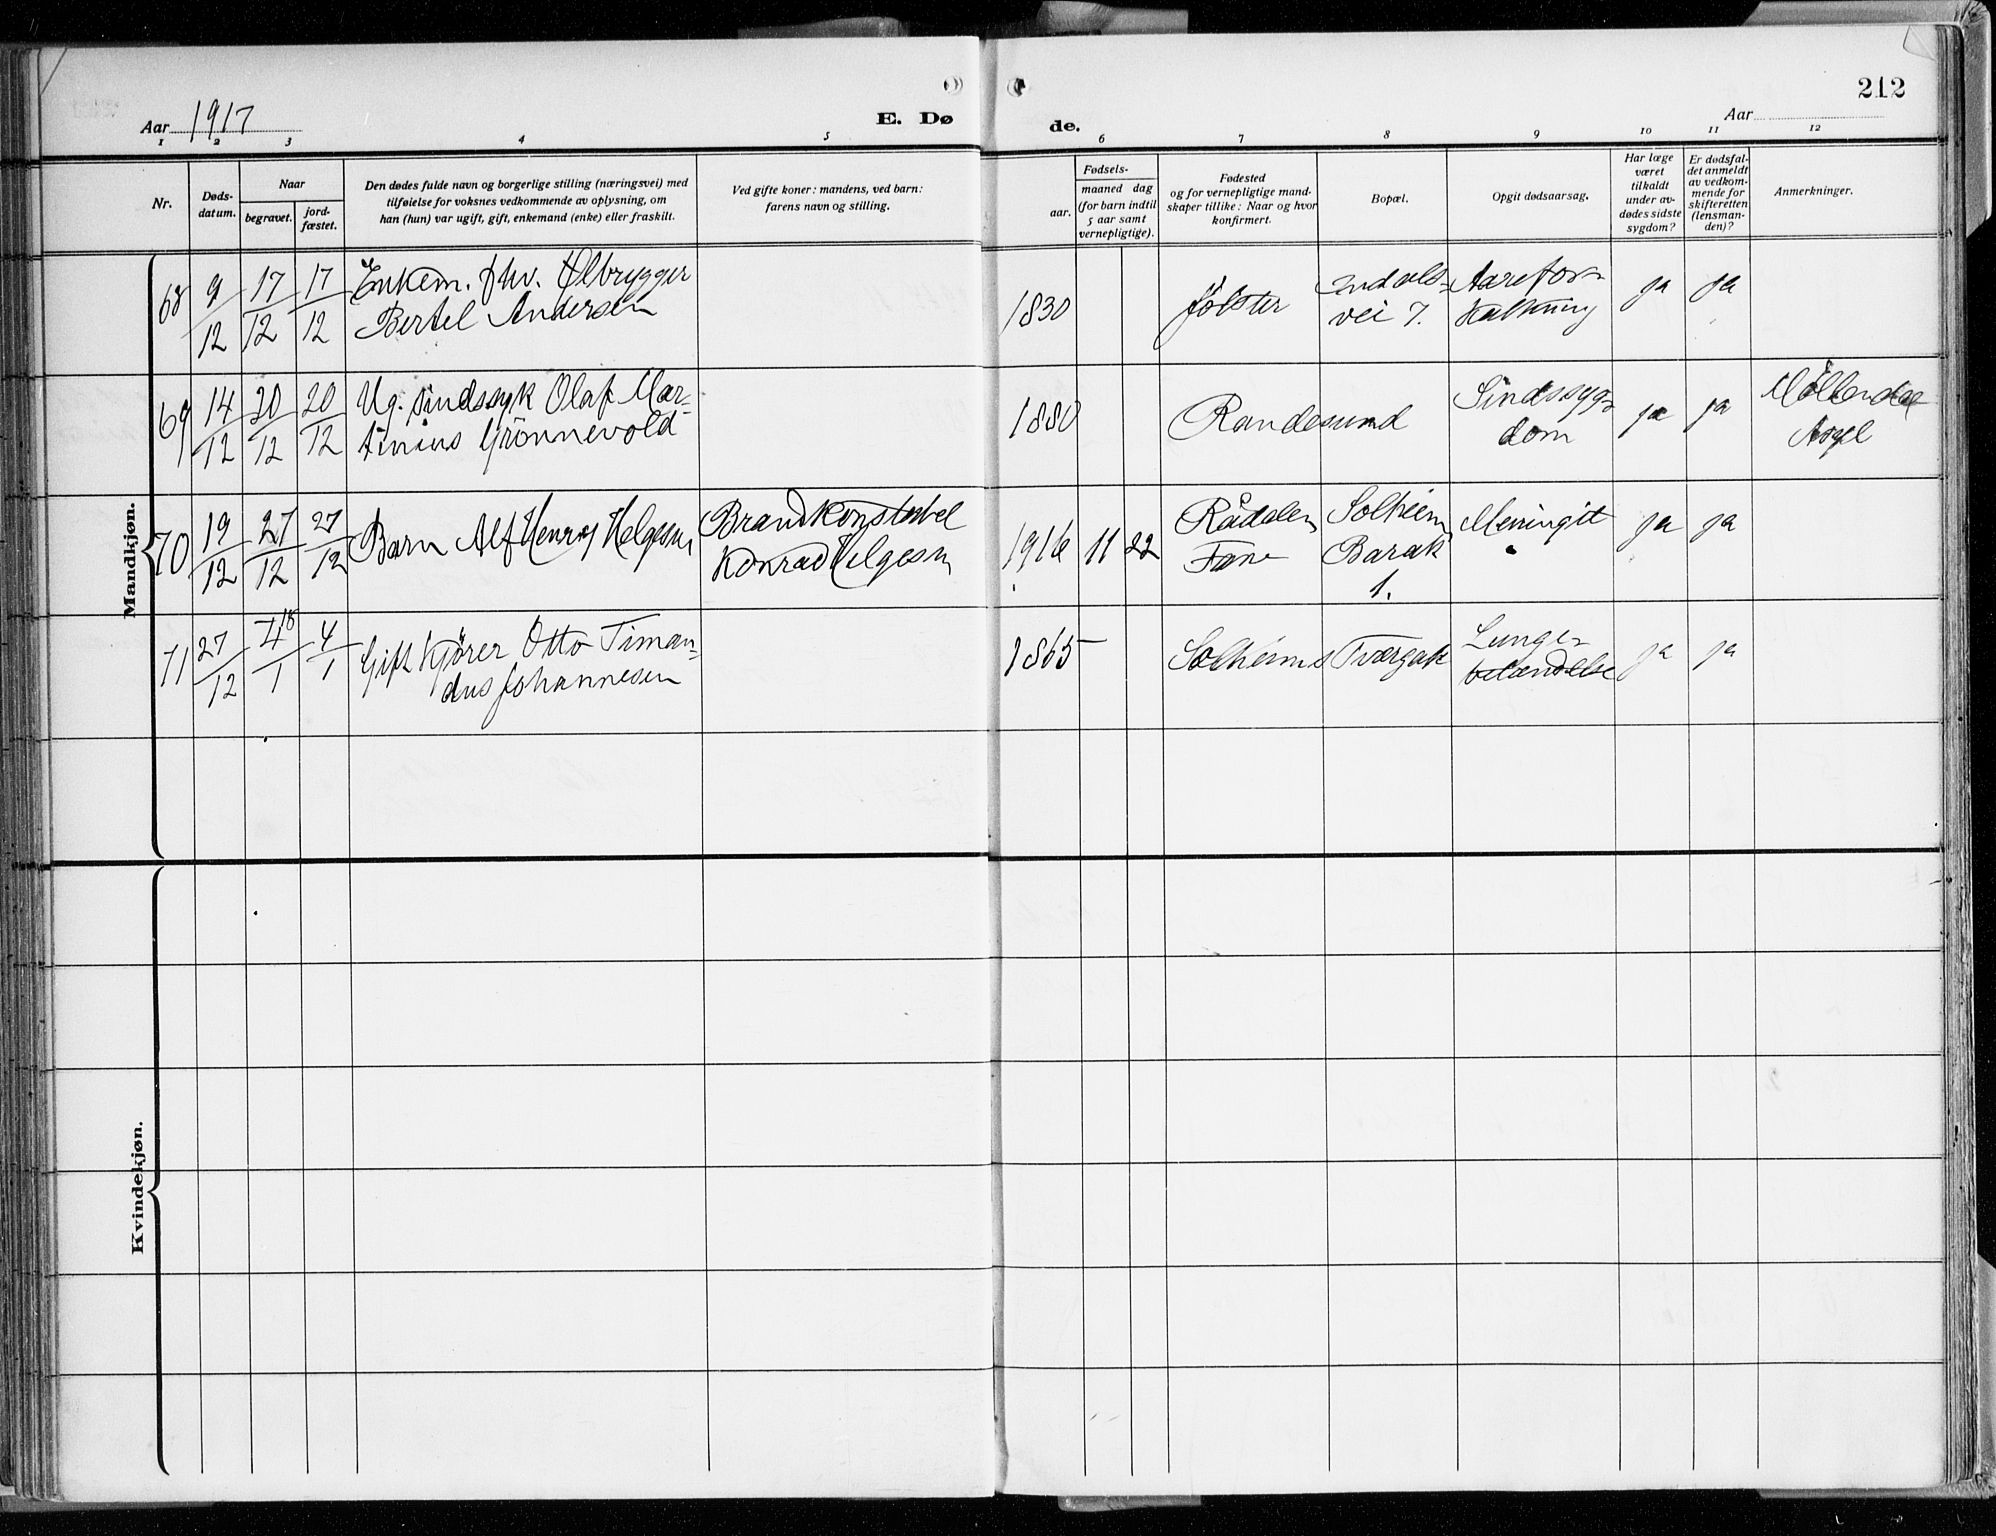 212
Aar 1917
E. Dø
de.
Aar
1 2 3 4 5 6 7 8 9 10 11 12
Nr.
Døds-
datum.
Naar
begravet.
jord-
fæstet.
Den dødes fulde navn og borgerlige stilling (næringsvei) med
tilføielse for voksnes vedkommende av oplysning, om
han (hun) var ugift, gift, enkemand (enke) eller fraskilt.
Ved gifte koner: mandens, ved barn:
farens navn og stilling.
Fødsels-
aar.
maaned dag
(for barn indtil
5 aar samt
vernepligtige).
Fødested
og for vernepligtige mand-
skaper tillike: Naar og hvor
konfirmert.
Bopæl.
Opgit dødsaarsag.
Har læge
været
tilkaldt
under av-
dødes sidste
sygdom?
Er dødsfal-
det anmeldt
av vedkom-
mende for
skifteretten
(lensman-
den)?
Anmerkninger.
Mandkjøn.
68 9/12 17/12 17/12
Enkem. fhv. Ølbrygger
Bertel Andersen
1830
Jölster
vei 7.
Aarefor-
kalkning
ja ja
69 14/12 20/12 20/12
Ug. sindssyk Olaf Mar-
tinius Grönnevold
1880
Randesund
Sindssyg-
dom
ja ja
Möllendal
Asyl
70 19/12 27/12 27/12
Barn Alf Henry Helgesen
Brandkonstabel
Konrad Helgesen
1916 11 22
Rådalen
Fane
Solheim
Barak
1.
Meningit
ja ja
71 27/12 4/1 18 4/1
Gift Kjörer Otto Timan-
dus Johannesen
1865
Solheims Tværgate
Lunge-
betændelse
ja ja
Kvindekjøn.